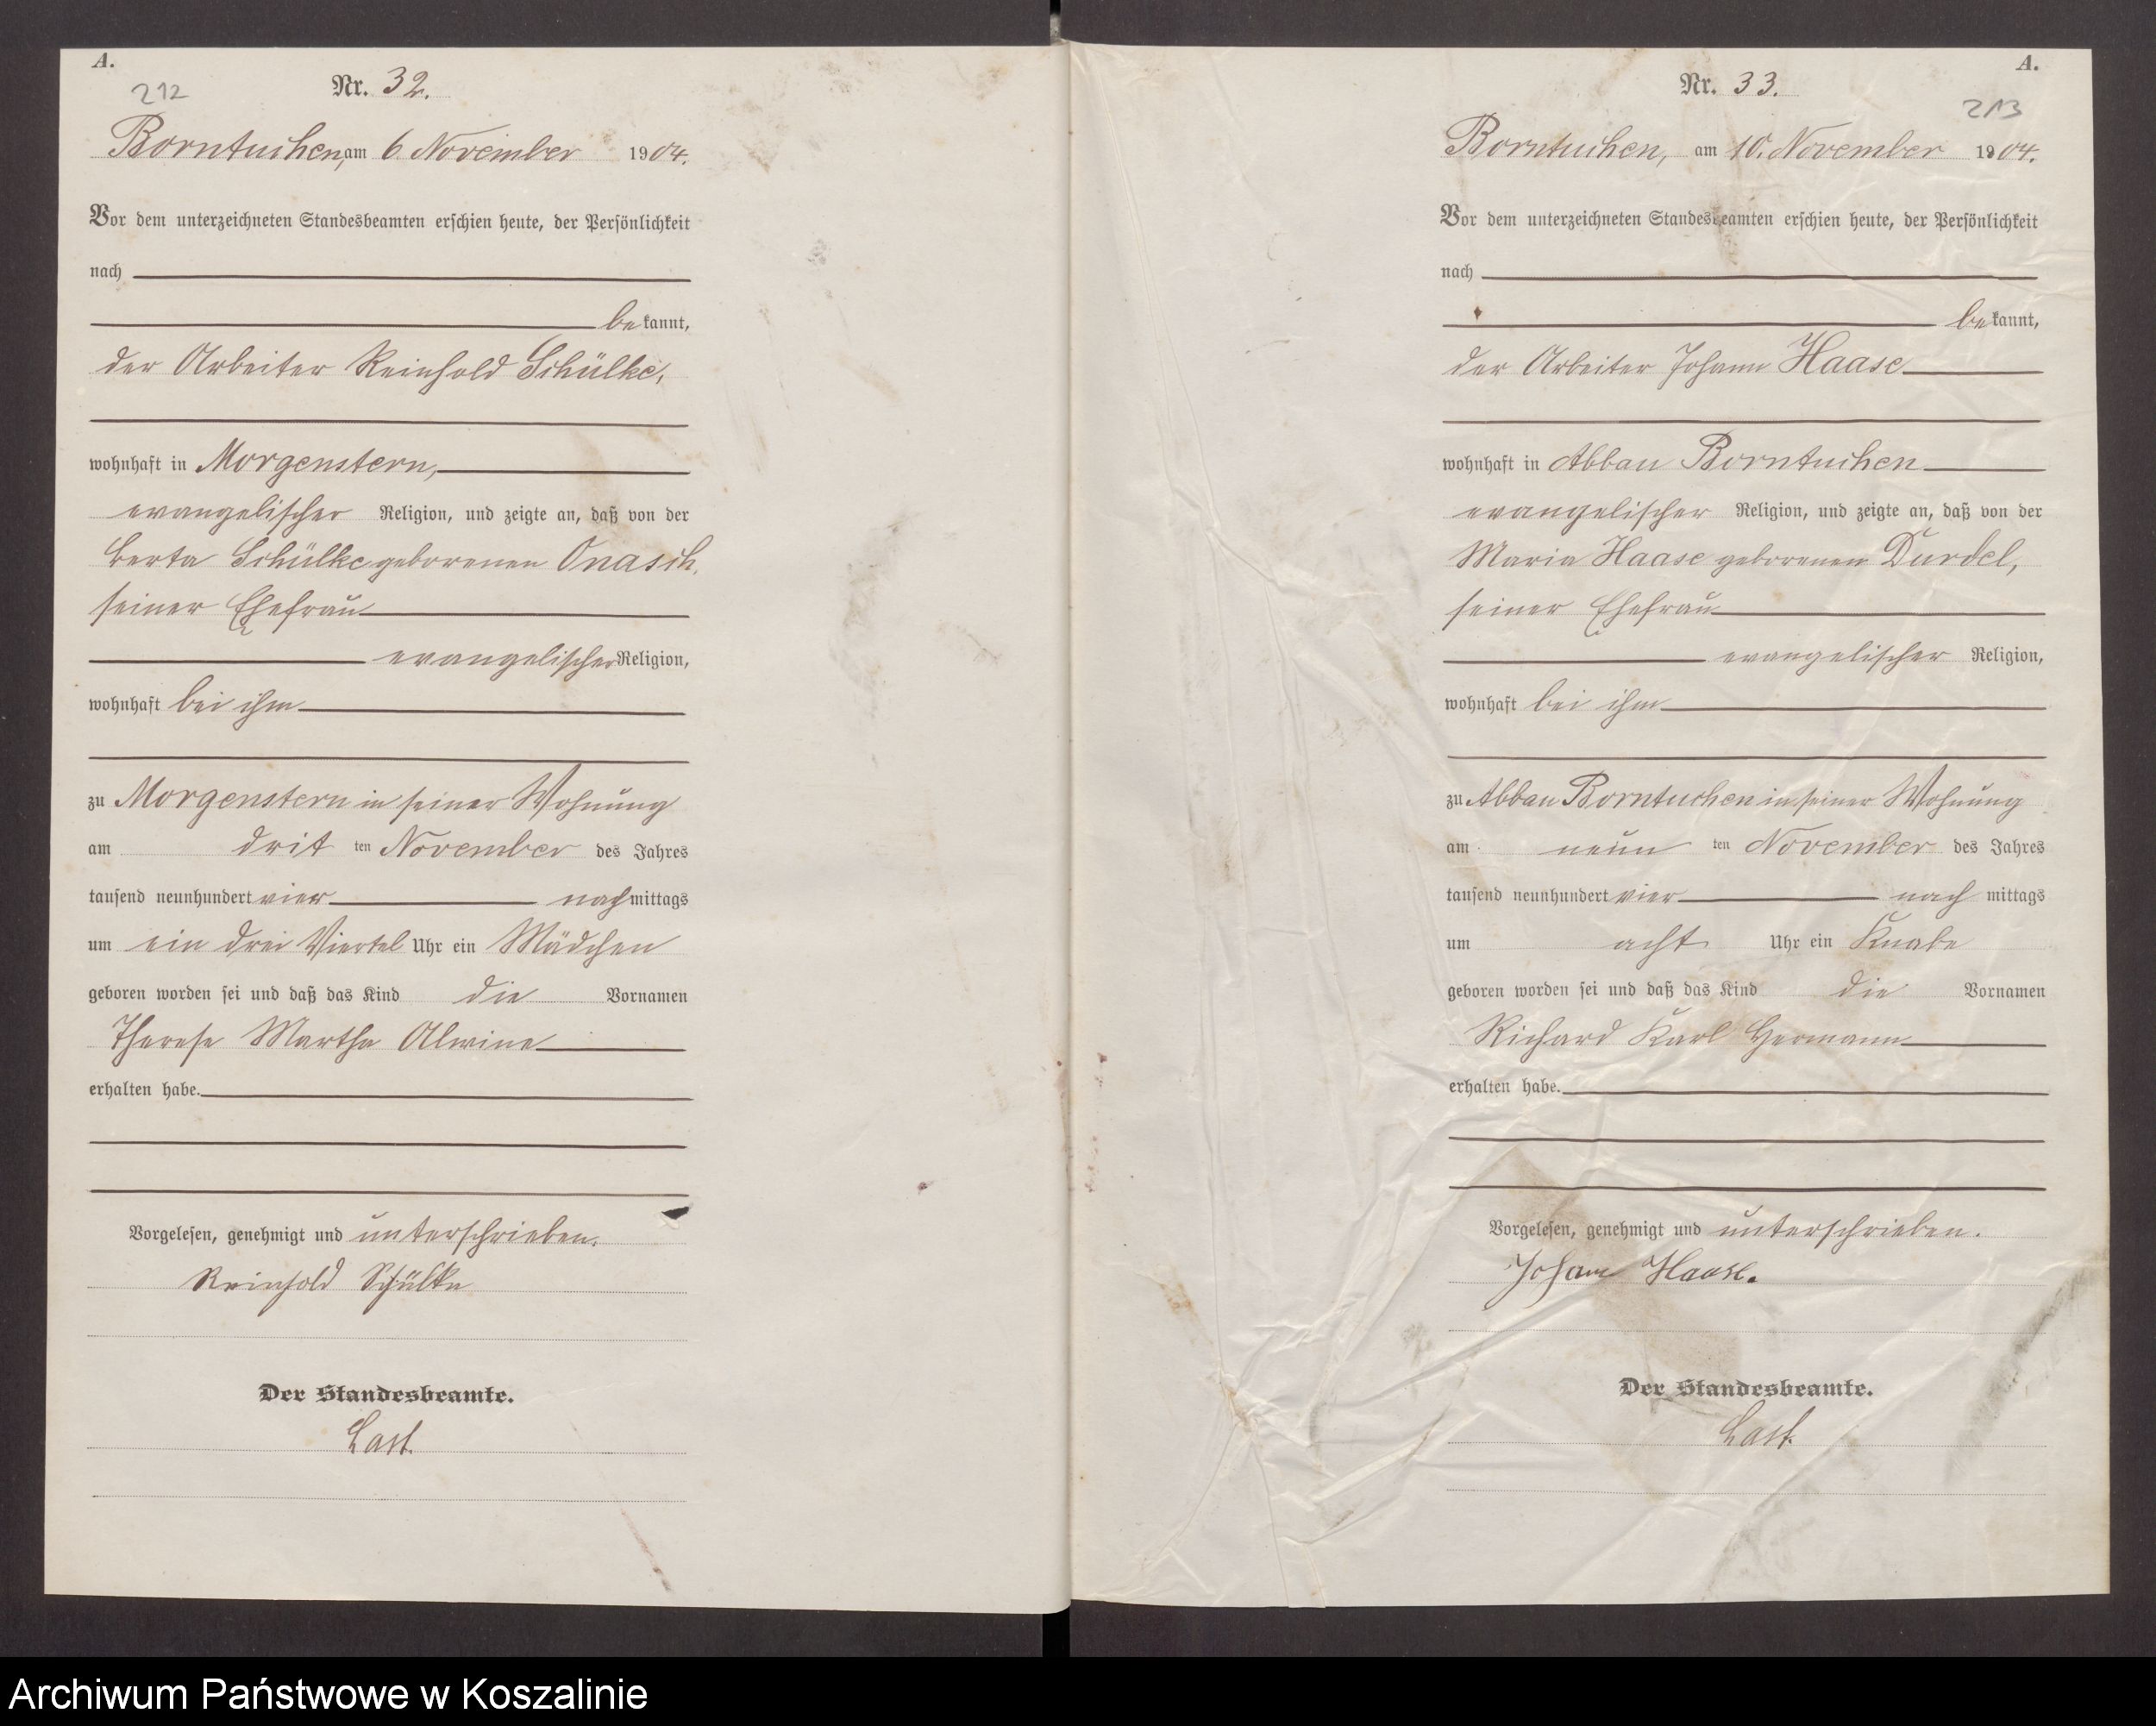 A.
212
Nr. 32.
Borntuchen, am 6. November 1904.
Vor dem unterzeichneten Standesbeamten erschien heute, der Persönlichkeit
nach
bekannt,
der Arbeiter Reinhold Schülke,
wohnhaft in Morgenstern,
evangelischer Religion, und zeigte an, daß von der
Berta Schülke geborenen Onasch,
seiner Ehefrau
evangelischer Religion,
wohnhaft bei ihm
zu Morgenstern in seiner Wohnung
am drit ten November des Jahres
tausend neunhundert vier nachmittags
um ein drei Viertel Uhr ein Mädchen
geboren worden sei und daß das Kind die Vornamen
Therese Martha Alwine
erhalten habe.
Vorgelesen, genehmigt und unterschrieben.
Reinhold Schülke
Der Standesbeamte.
Last.
A.
Nr. 33.
213
Borntuchen, am 10. November 1904.
Vor dem unterzeichneten Standesbeamten erschien heute, der Persönlichkeit
nach
bekannt,
der Arbeiter Johann Haase
wohnhaft in Abbau Borntuchen
evangelischer Religion, und zeigte an, daß von der
Maria Haase geborenen Durdel,
seiner Ehefrau
evangelischer Religion,
wohnhaft bei ihm
zu Abbau Borntuchen in seiner Wohnung
am neun ten November des Jahres
tausend neunhundert vier nach mittags
um acht Uhr ein Knabe
geboren worden sei und daß das Kind die Vornamen
Richard Karl Hermann
erhalten habe.
Vorgelesen, genehmigt und unterschrieben.
Johann Haase.
Der Standesbeamte.
Last.
Archiwum Państwowe w Koszalinie